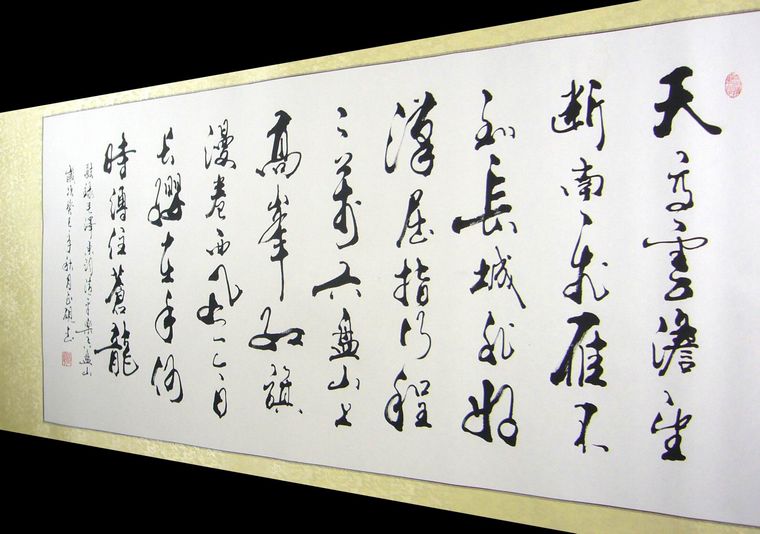 天高雲澹望
断南飛雁不
到長城非好
漢屈指行程
二萬六盤山上
高峯紅旗
漫卷西風今日
長纓在手何
時縛住蒼龍
敬録毛澤東詞清平樂六盤山
歲次癸巳年秋月